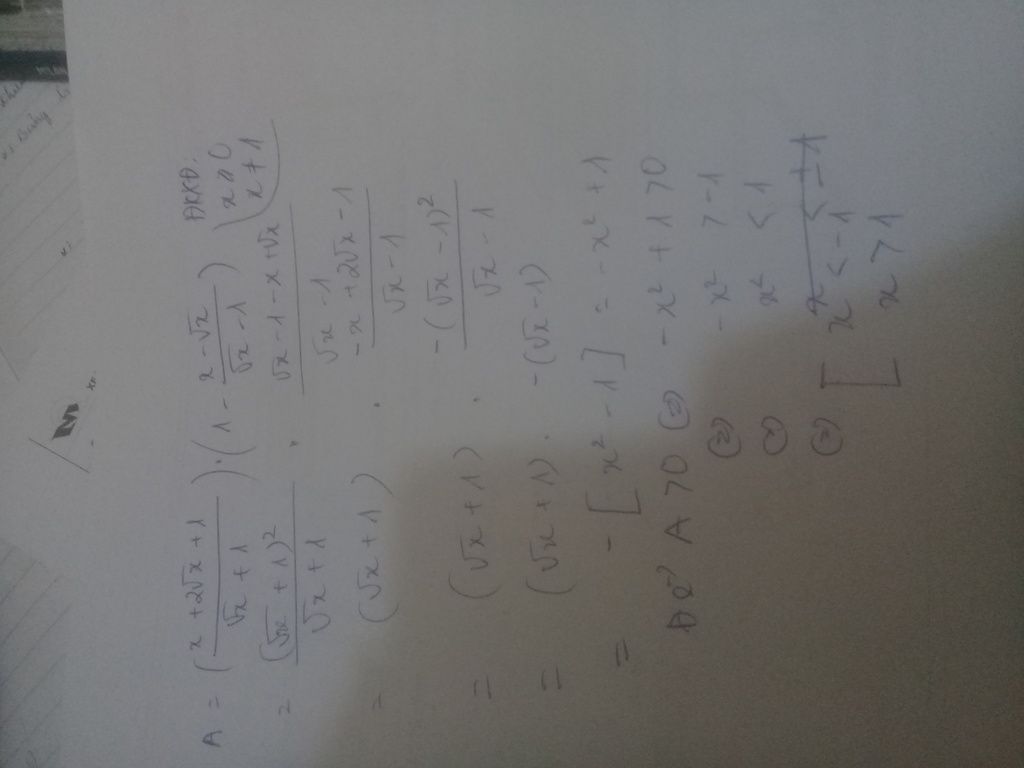 A = (x + 2√x + 1 / √x + 1) . (1 - x - √x / √x - 1) ĐKXĐ: x ≥ 0
x ≠ 1
= (√x + 1)² / √x + 1 . √x - 1 - x + √x / √x - 1
= (√x + 1) . -x + 2√x - 1 / √x - 1
= (√x + 1) . -(√x - 1)² / √x - 1
= (√x + 1) . -(√x - 1)
= -[x² - 1] = -x² + 1
Để A > 0 (=) -x² + 1 > 0
(=) -x² > -1
(=) x² < 1
(=) [ x < -1
x > 1